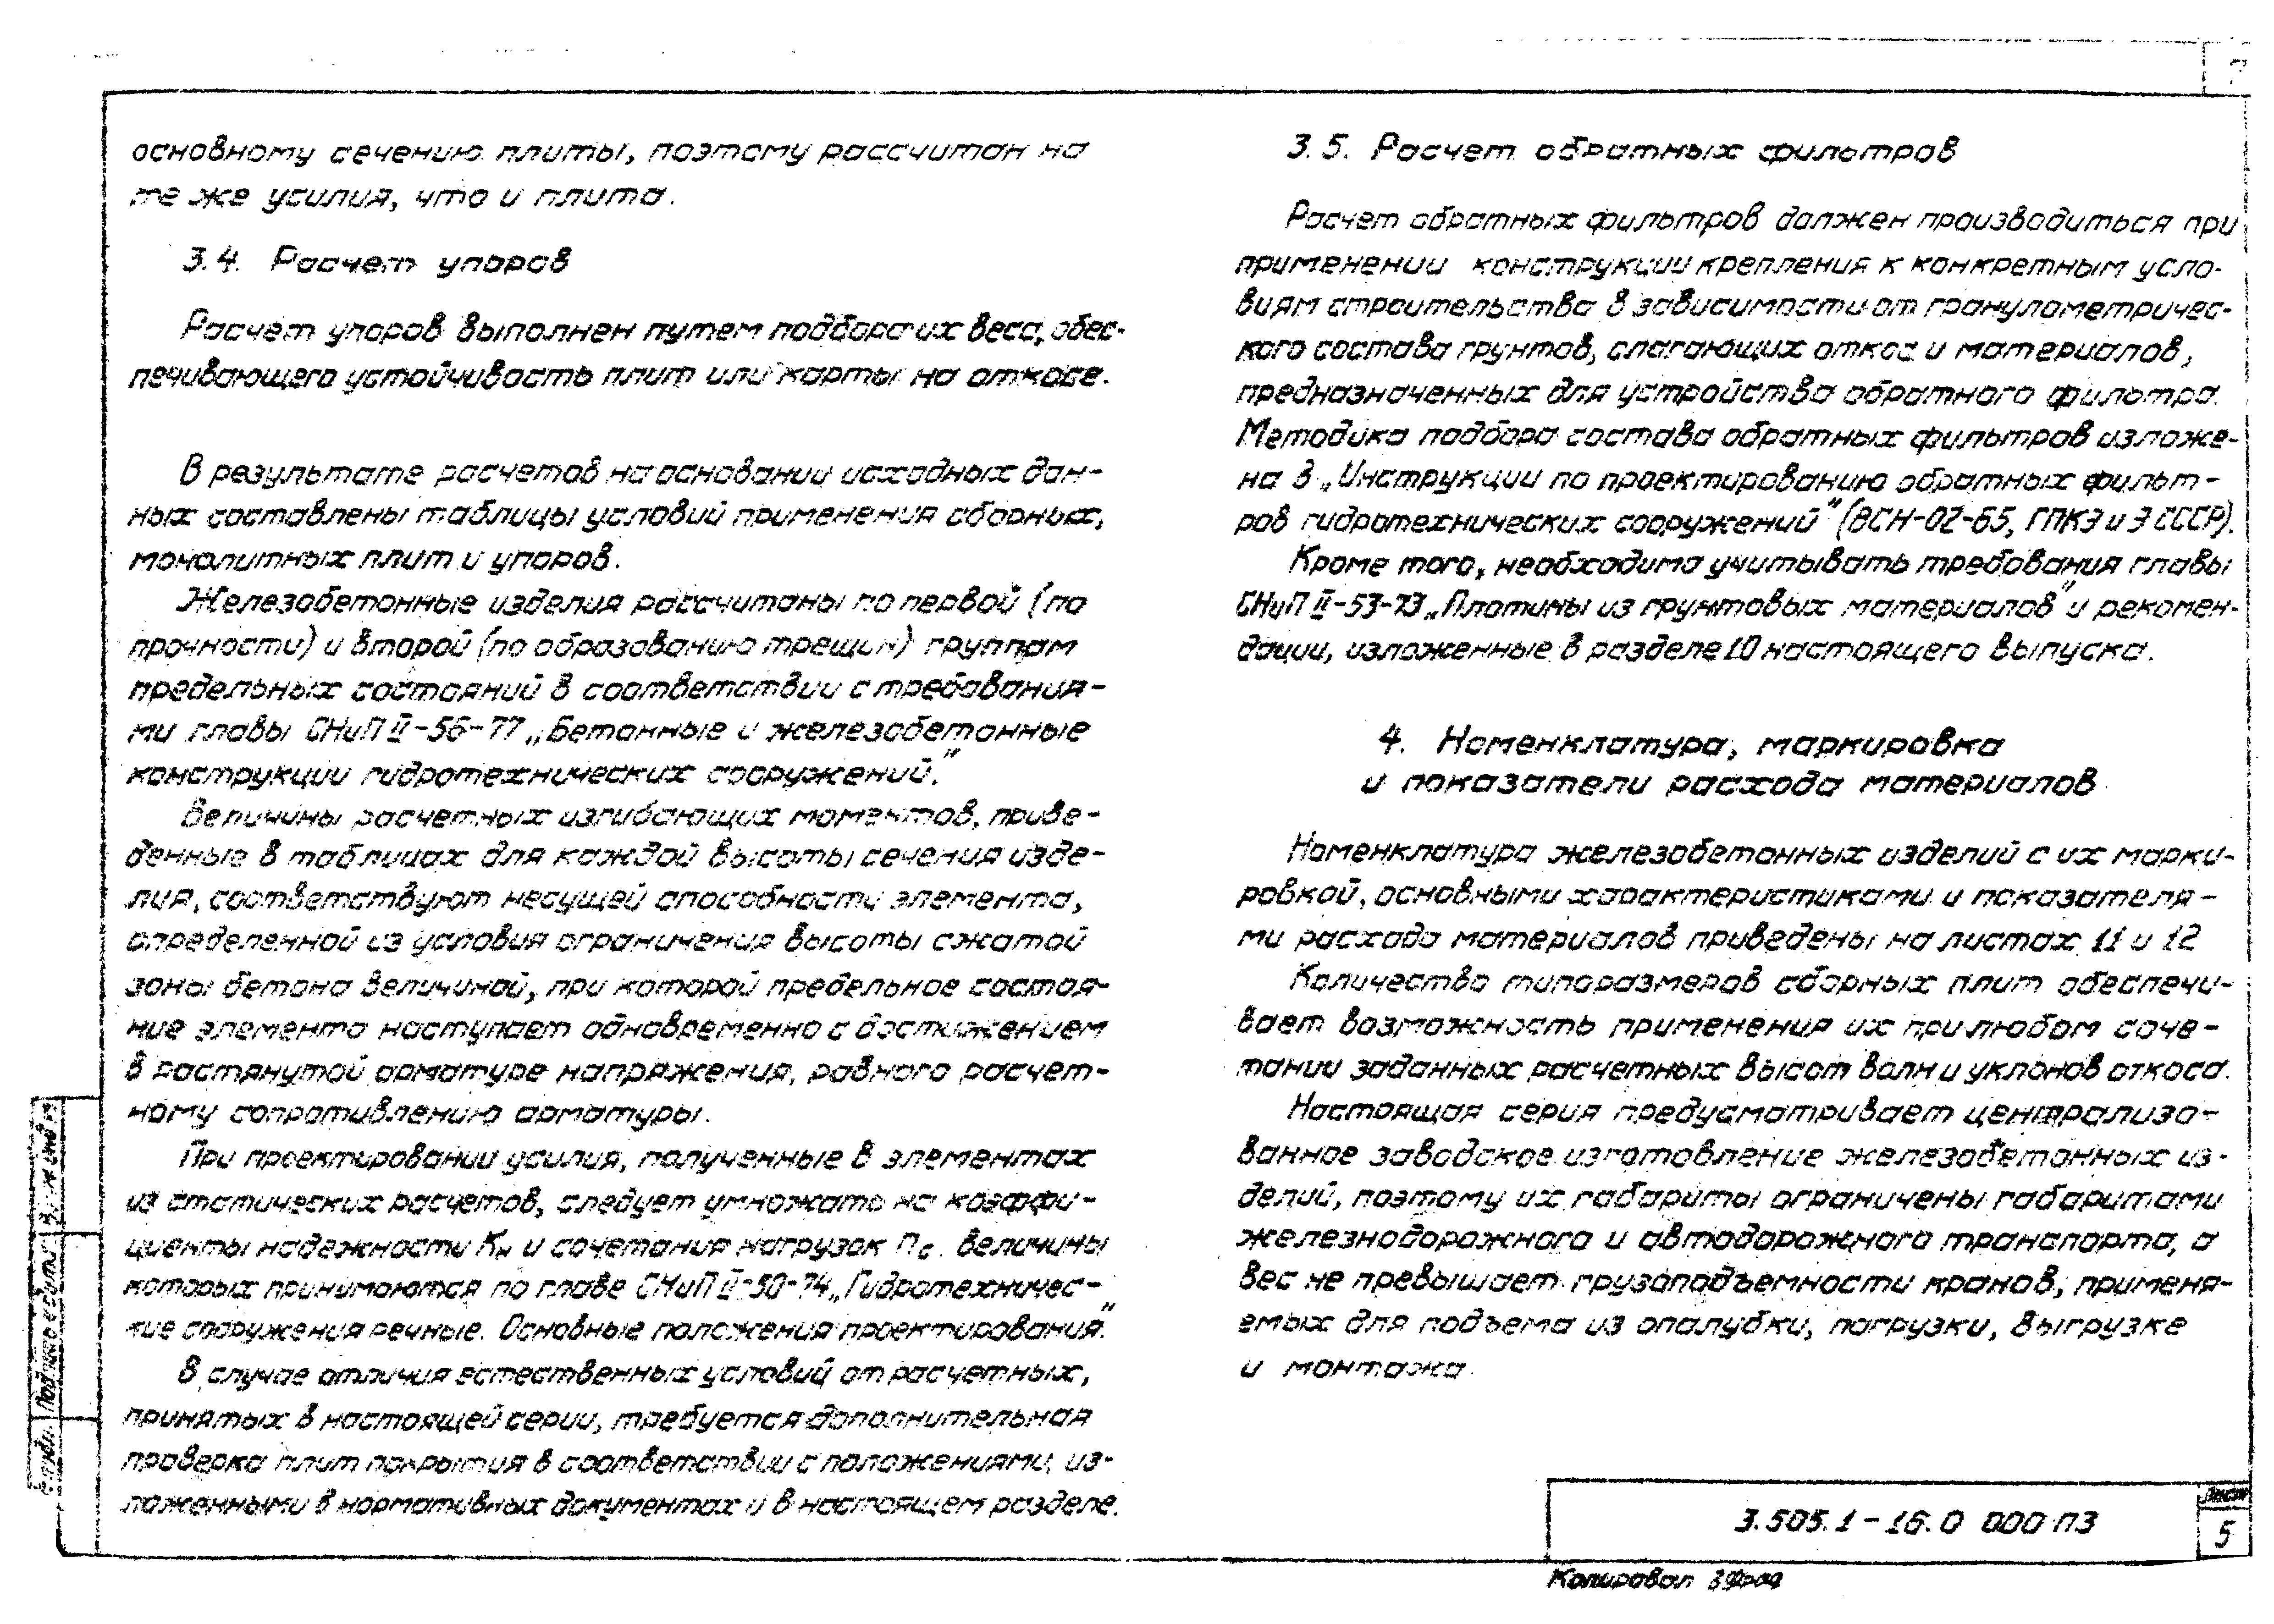 7
основному сечению плиты, поэтому рассчитан на
те же усилия, что и плита.
3.4. Расчет упоров
Расчет упоров выполнен путем подбора их веса, обес-
печивающего устойчивость плит или карты на откосе.
В результате расчетов на основании исходных дан-
ных составлены таблицы условий применения сборных,
монолитных плит и упоров.
Железобетонные изделия рассчитаны по первой (по
прочности) и второй (по образованию трещин) группам
предельных состояний в соответствии с требования-
ми главы СНиП II-56-77 „Бетонные и железобетонные
конструкции гидротехнических сооружений."
Величины расчетных изгибающих моментов, приве-
денные в таблицах для каждой высоты сечения изде-
лия, соответствуют несущей способности элемента,
определенной из условия ограничения высоты сжатой
зоны бетона величиной, при которой предельное состоя-
ние элемента наступает одновременно с достижением
в растянутой арматуре напряжения, равного расчет-
ному сопротивлению арматуры.
При проектировании усилия, полученные в элементах
из статических расчетов, следует умножать на коэффи-
циенты надежности Кн и сочетания нагрузок nс. величины
которых принимаются по главе СНиП II-50-74 „Гидротехничес-
кие сооружения речные. Основные положения проектирования."
В случае отличия естественных условий от расчетных,
принятых в настоящей серии, требуется дополнительная
проверка плит покрытия в соответствии с положениями, из-
ложенными в нормативных документах и в настоящем разделе.
3.5. Расчет обратных фильтров
Расчет обратных фильтров должен производиться при
применении конструкции крепления к конкретным усло-
виям строительства в зависимости от гранулометричес-
кого состава грунтов, слагающих откос и материалов,
предназначенных для устройства обратного фильтра.
Методика подбора состава обратных фильтров изложе-
на в „Инструкции по проектированию обратных фильт-
ров гидротехнических сооружений" (ВСН-02-65, ГПКЭ и Э СССР).
Кроме того, необходимо учитывать требования главы
СНиП II-53-73 „Плотины из грунтовых материалов" и рекомен-
дации, изложенные в разделе 10 настоящего выпуска.
4. Номенклатура, маркировка
и показатели расхода материалов
Номенклатура железобетонных изделий с их марки-
ровкой, основными характеристиками и показателя-
ми расхода материалов приведены на листах 11 и 12
Количество типоразмеров сборных плит обеспечи-
вает возможность применения их при любом соче-
тании заданных расчетных высот волн и уклонов откоса.
Настоящая серия предусматривает централизо-
ванное заводское изготовление железобетонных из-
делий, поэтому их габариты ограничены габаритами
железнодорожного и автодорожного транспорта, а
вес не превышает грузоподъемности кранов, применя-
емых для подъема из опалубки, погрузки, выгрузке
и монтажа.
3.505.1-16.0 000 ПЗ
Лист
5
Копировал
Подпись и дата